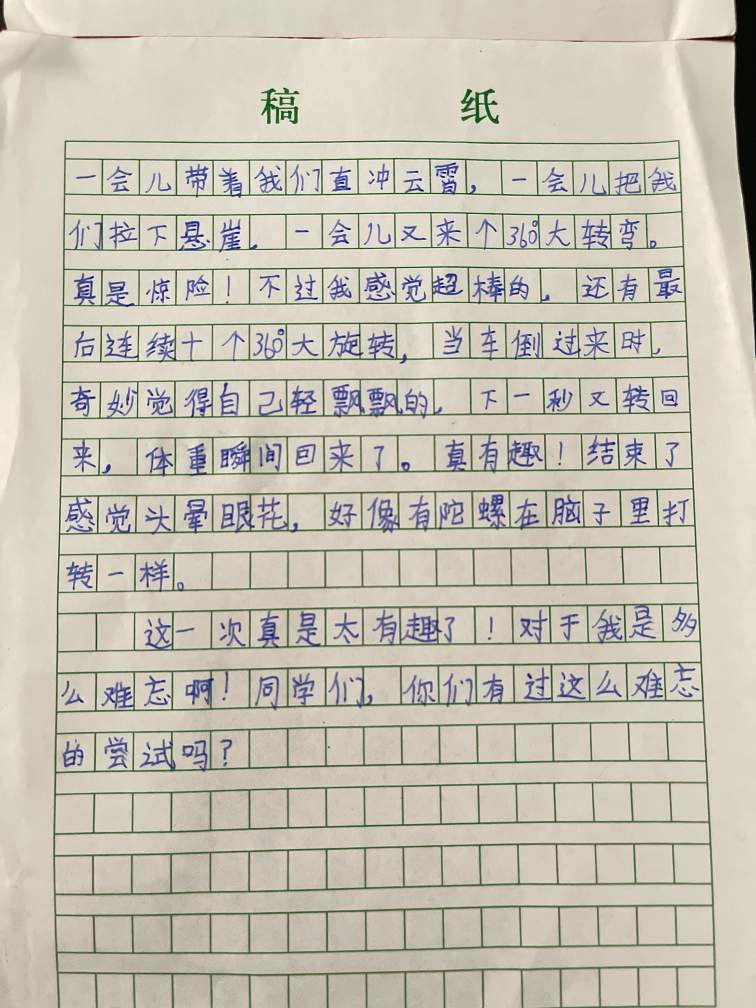 稿 纸
一会儿带着我们直冲云霄，一会儿把我
们拉下悬崖，一会儿又来个360°大转弯。
真是惊险！不过我感觉超棒的，还有最
后连续十个360°大旋转，当车倒过来时，
奇妙觉得自己轻飘飘的，下一秒又转回
来，体重瞬间回来了。真有趣！结束了
感觉头晕眼花，好像有陀螺在脑子里打
转一样。
这一次真是太有趣了！对于我是多
么难忘啊！同学们，你们有过这么难忘
的尝试吗？